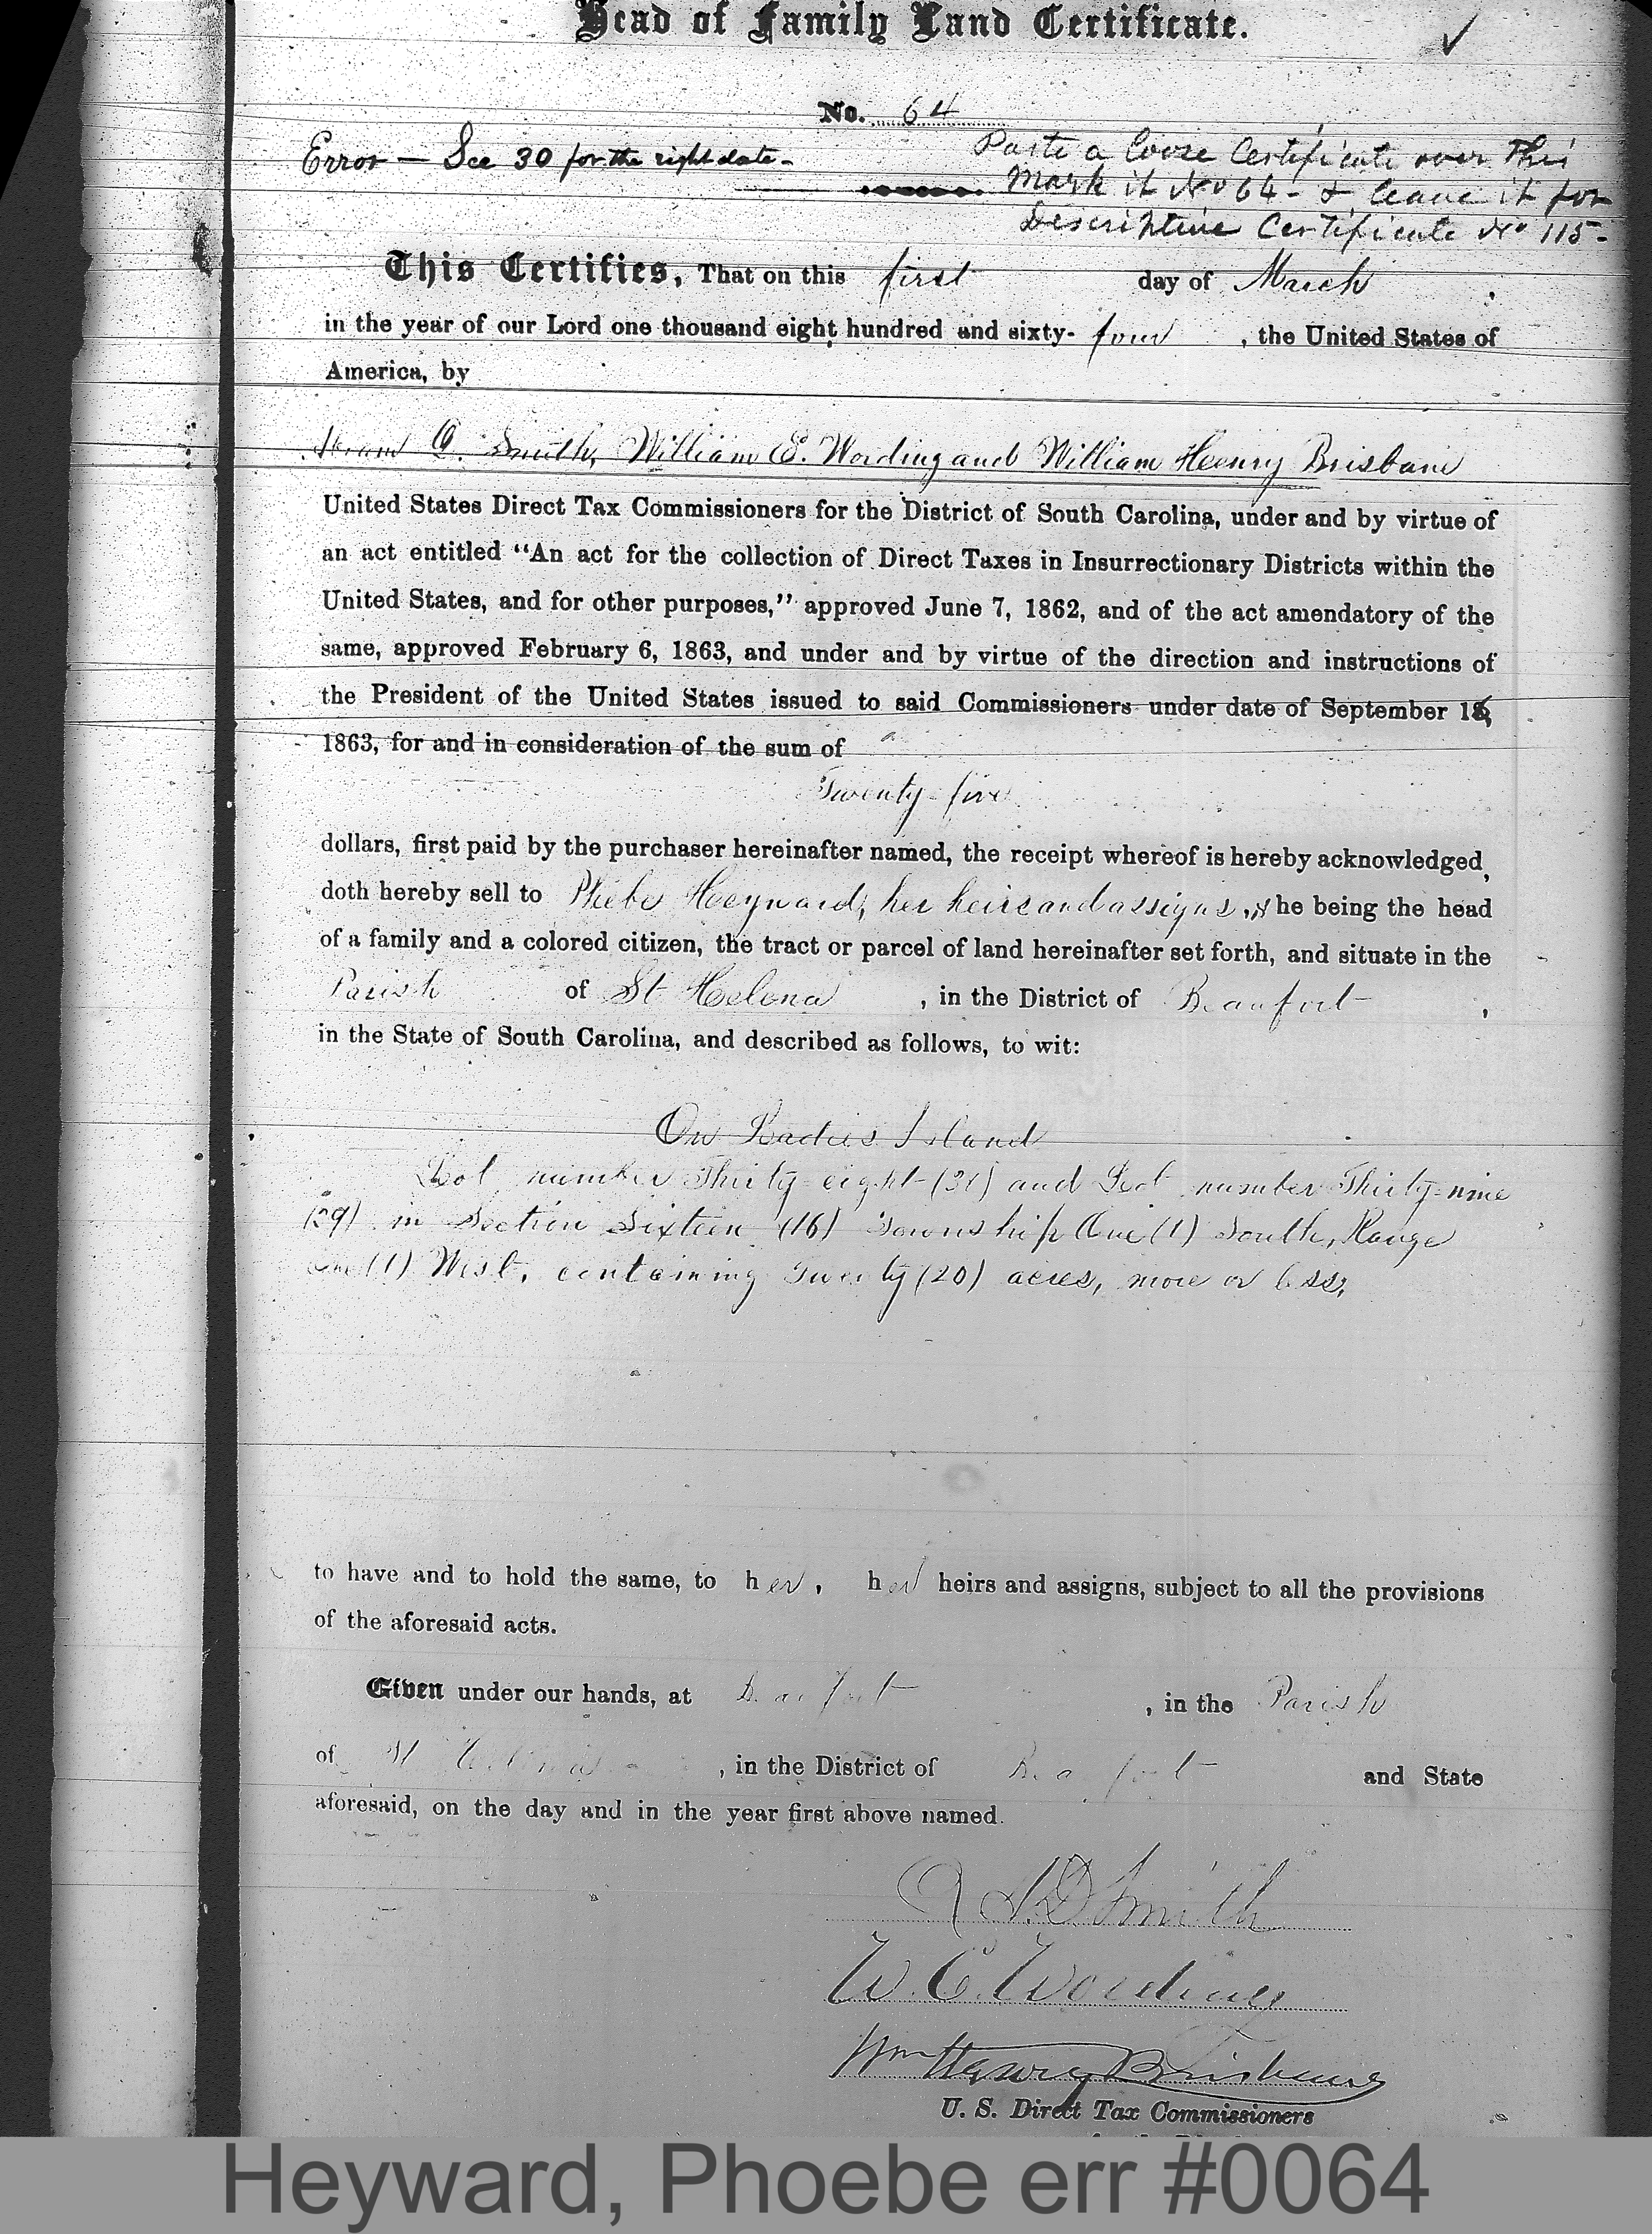 Head of Family Land Certificate.
No. 64
Error — See 30 for the right date -
Paste a loose Certificate over this
Mark it No 64 - & leave it for
Descriptive Certificate No 115 -
This Certifies, That on this first day of March,
in the year of our Lord one thousand eight hundred and sixty-four, the United States of
America, by
Abram D. Smith, William E. Wording and William Henry Brisbane
United States Direct Tax Commissioners for the District of South Carolina, under and by virtue of
an act entitled "An act for the collection of Direct Taxes in Insurrectionary Districts within the
United States, and for other purposes," approved June 7, 1862, and of the act amendatory of the
same, approved February 6, 1863, and under and by virtue of the direction and instructions of
the President of the United States issued to said Commissioners under date of September 16,
1863, for and in consideration of the sum of
Twenty-five
dollars, first paid by the purchaser hereinafter named, the receipt whereof is hereby acknowledged,
doth hereby sell to Phebe Heyward, her heirs and assigns, she being the head
of a family and a colored citizen, the tract or parcel of land hereinafter set forth, and situate in the
Parish of St Helena, in the District of Beaufort,
in the State of South Carolina, and described as follows, to wit:
On Ladies Island
Lot number Thirty-eight (38) and Lot number Thirty-nine
(39) in Section Sixteen (16) Township One (1) South, Range
One (1) West, containing Twenty (20) acres, more or less,
to have and to hold the same, to her, her heirs and assigns, subject to all the provisions
of the aforesaid acts.
Given under our hands, at Beaufort, in the Parish
of St Helena, in the District of Beaufort and State
aforesaid, on the day and in the year first above named.
A. D. Smith
W. E. Wording
Wm Henry Brisbane
U. S. Direct Tax Commissioners
Heyward, Phoebe err #0064